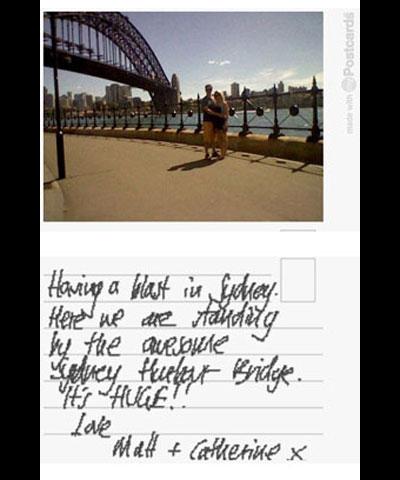 made with Postcards
Having a blast in Sydney.
Here we are standing
by the awesome
Sydney Harbour Bridge.
It's HUGE!!
Love
Matt + Catherine x